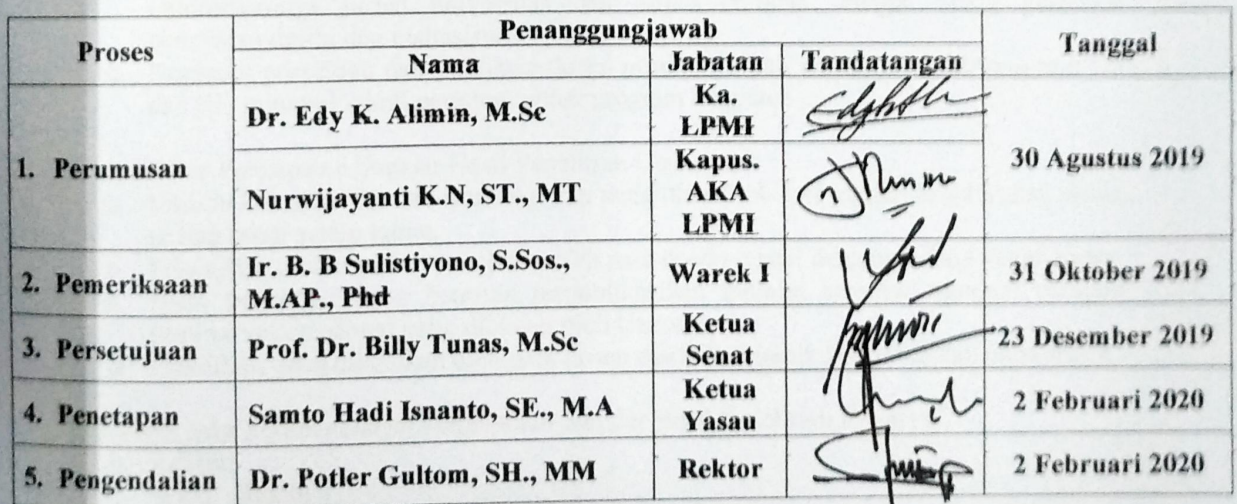 Proses Penanggungjawab Tanggal
Nama Jabatan Tandatangan
1. Perumusan
Dr. Edy K. Alimin, M.Sc
Ka.
LPMI
30 Agustus 2019
Nurwijayanti K.N, ST., MT
Kapus.
AKA
LPMI
2. Pemeriksaan
Ir. B. B Sulistiyono, S.Sos.,
M.AP., Phd
Warek I
31 Oktober 2019
3. Persetujuan
Prof. Dr. Billy Tunas, M.Sc
Ketua
Senat
23 Desember 2019
4. Penetapan
Samto Hadi Isnanto, SE., M.A
Ketua
Yasau
2 Februari 2020
5. Pengendalian
Dr. Potler Gultom, SH., MM
Rektor
2 Februari 2020